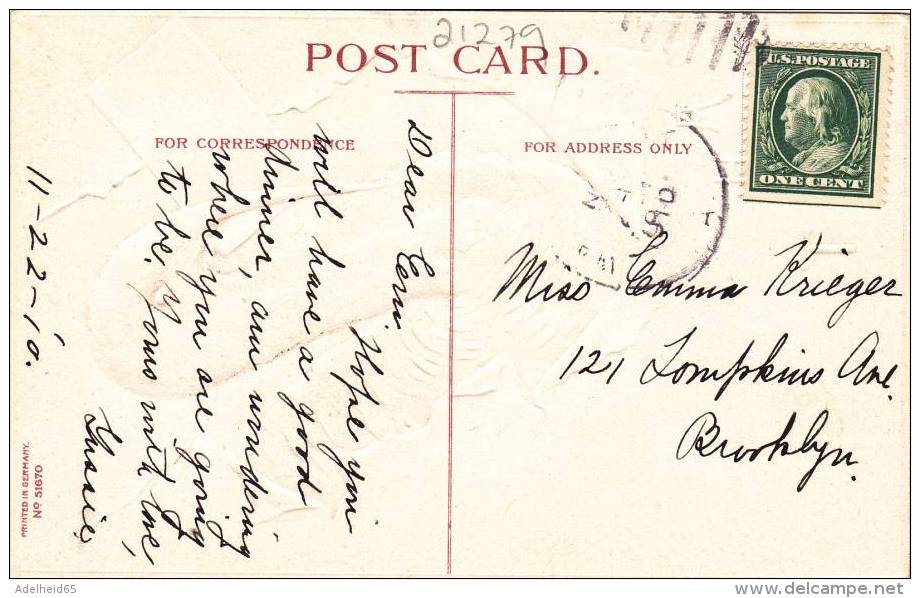 21279
POST CARD.
FOR CORRESPONDENCE
FOR ADDRESS ONLY
U.S. POSTAGE
ONE CENT
Dear Em
Hope you
will have a good
dinner, am wondering
where you are going
to be. Yours with love,
Gussie,
11-22-'10.
Miss Emma Krieger
121 Tompkins Ave.
Brooklyn.
PRINTED IN GERMANY.
No 51670
Adelheid65
www.delcampe.net